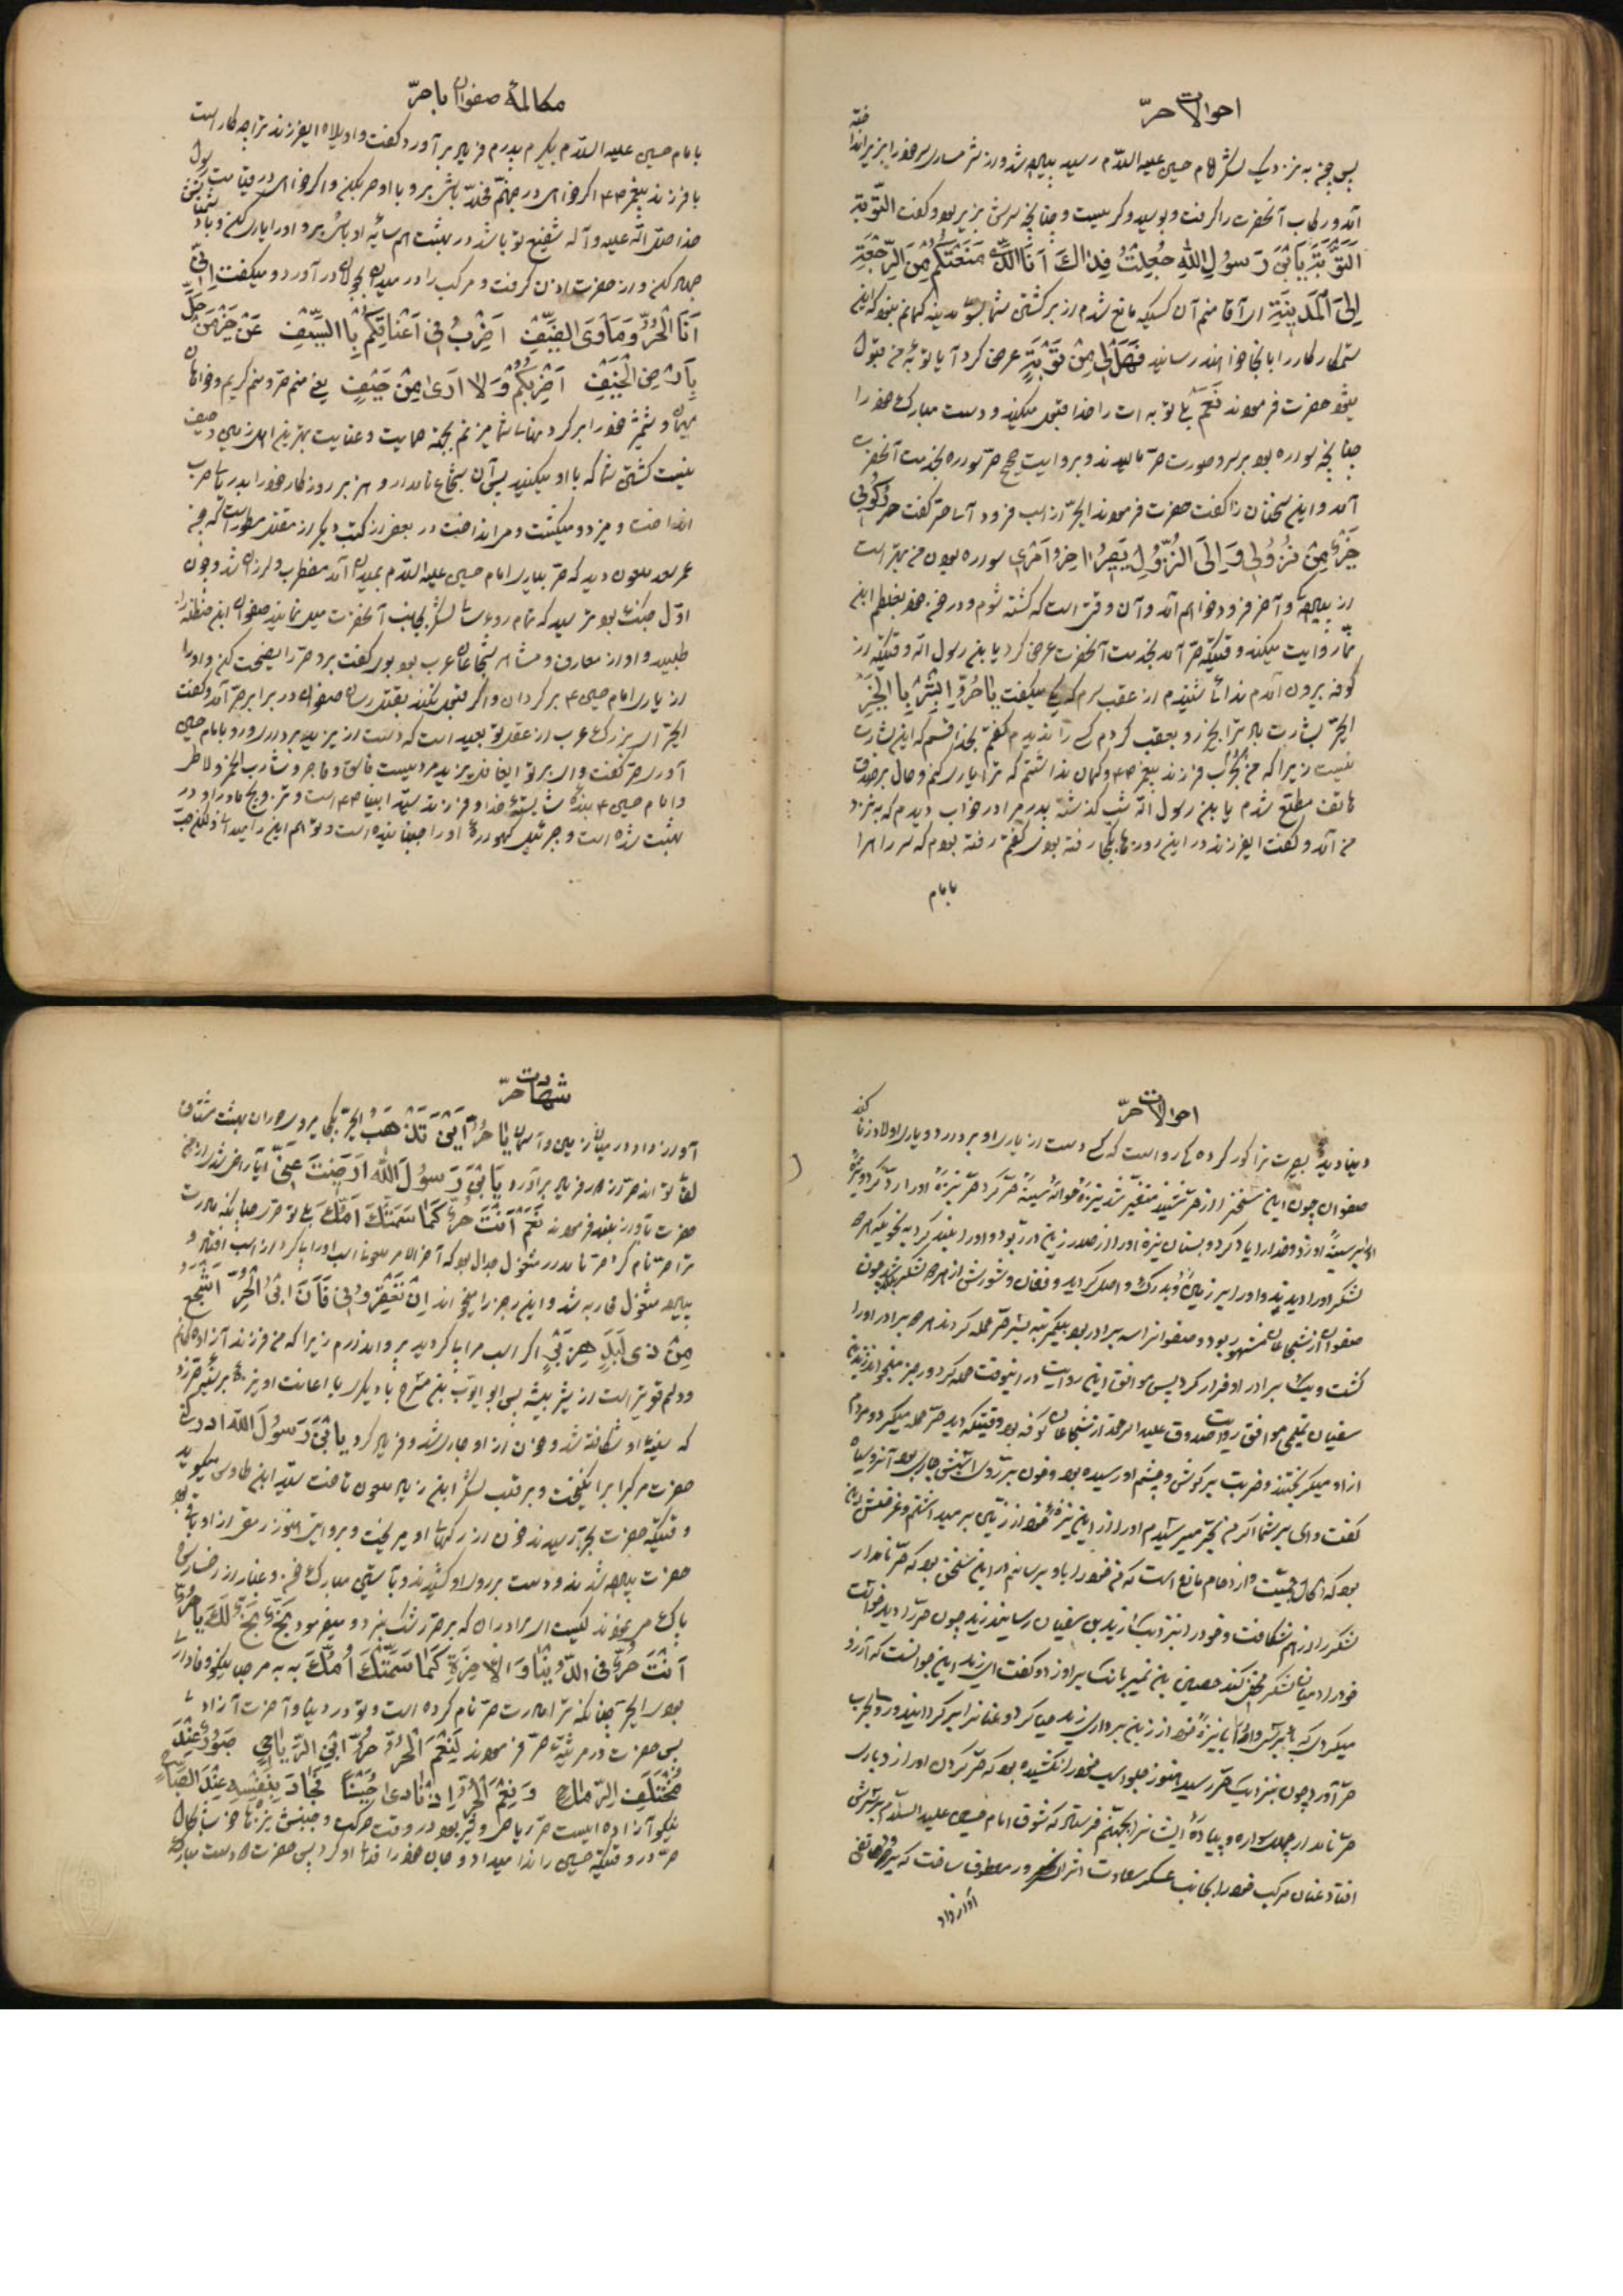 احوالات حرّ
پس چون به نزدیک لشکر امام حسین علیه السّلام رسید پیاده شد و از شرمساری سر خود را بزیر انداخته
آمد و رکاب آنحضرت را گرفت و بوسید و گریست و چنانچه سرش بزیر بود و گفت التّوبة
اَلتَّوْبَةُ یَابْنَ رَسُولِ اللهِ جُعِلْتُ فِدٰاكَ اَنَا الَّذی مَنَعْتُکُمْ مِنَ الرَّجْعَةِ
اِلیَ الْمَدینَةِ ای آقا منم آن کسیکه مانع شدم از برگشتن شما بسوی مدینه گمانم نبود که این
ستمکار کار را باینجا خواهند رسانید فَهَلْ لی مِنْ تَوْبَةٍ عرض کرد آیا توبه من قبول
میشود حضرت فرمودند نَعَمْ بلی توبه ات را خدا قبول میکند و دست مبارک خود را
چنانچه سواره بود بر سر و صورت حرّ مالیدند و بروایت صحیح حرّ سواره بخدمت آنحضرت
آمد و این سخنان را گفت حضرت فرمودند ایحرّ از اسب فرود آ حرّ گفت رُکُوبی
خَیْرٌ مِنْ نُزُولی وَ اِلَی النُّزُولِ یَصیرُ اٰخِرُ اَمْری سواره بودن من بهتر است
از پیادگی و آخر فرود خواهم آمد و آن وقتی است که کشته شوم و در خون خود بغلطم ابن
نمّا روایت میکند وقتیکه حرّ آمد بخدمت آنحضرت عرض کرد یا بن رسول الله وقتیکه از
کوفه بیرون آمدم ندائی شنیدم از عقب سرم که میگفت یٰا حُرُّ اَبْشِرْ بِالْخَیْرِ
ایحرّ بشارت باد ترا بخیر رو بعقب کردم کسی را ندیدم گفتم بخدا قسم که این بشارت
نیست زیرا که من بحرب فرزند پیغمبر ص و گمان نداشتم که ترا یاری کنم و حال بر صدق
هاتف مطلع شدم یا بن رسول الله شب گذشته پدرم را در خواب دیدم که به نزد
من آمد و گفت ایفرزند در این روزها بکجا رفته بودی گفتم رفته بودم که سر راه را
بامام
مکالمهٔ صفوان با حرّ
بامام حسین علیه السلام بگیرم پدرم فریاد بر آورد گفت واویلاه ایفرزند ترا چه کار است
با فرزند پیغمبر ص اگر خواهی در جهنّم مخلّد باشی برو با او حرب کن و اگر خواهی در قیامت رسول
خدا صلی الله علیه و آله شفیع تو باشد و در بهشت همسایه او باشی برو او را یاری کن و با دشمنانش
جهاد کن و از حضرت اذن گرفت و مرکب را در میدان بجولان در آورد و میگفت اِنّی
اَنَا الْحُرُّ وَمَأْوَی الضَّیْفِ اَضْرِبُ فی اَعْنٰاقِکُمْ بِالسَّیْفِ عَنْ خَیْرِ مَنْ حَلَّ
بِاَرْضِ الْخَیْفِ اَضْرِبُکُمْ وَلٰا اَرٰی مِنْ حَیْفٍ یعنی منم حرّ و منم کریم و خواهان
میهمان و شمشیر خود را بر گردنهای شما میزنم بجهة حمایت و عنایت بهترین اهل زمین و حیف
نیست کشتن شما که با او میکنید پس آن شجاع نامدار و هزبر روزگار خود را بدریای حرب
انداخت و میزد و میکشت و میانداخت در بعضی از کتب دیگر از مقتل مسطور است که چون
عمر سعد ملعون دید که حرّ بیاری امام حسین علیه السلام بمیدان آمد مضطرب و لرزان شد و چون
اوّل جنگ بود ترسید که تمام روسای لشکر بجانب آنحضرت میل نمایند صفوان ابن حنظله را
طلبید و او از معارف و مشاهیر شجاعان عرب بود بوی گفت برو حرّ را نصیحت کن و او را
از یاری امام حسین ع بر گردان و اگر قبول نکند بقتل رسان صفوان در برابر حرّ آمد و گفت
ایحرّ ای بزرگ عرب از عقل تو بعید است که دست از یزید برداری و رو بامام حسین
آوری حرّ گفت وای بر تو ایصفوان یزید مردیست فاسق و فاجر و شارب الخمر و لا طر
و امام حسین ع بنده شایسته خدا و فرزند سیّد انبیا ص است و تزویج مادر او در
بهشت شده است و جبرئیل گهواره او را جنبانیده است و تو هم این را میدانی ولکن حبّ
احوالات حرّ
دنیا دیده بصیرت ترا کور کرده کی رواست که کسی دست از یاری او بردارد و یاری اولاد زنا کند
صفوان چون این سخن را از حرّ شنید متغیّر شد نیزهٔ حوالهٔ سینهٔ حرّ کرد حرّ نیزهٔ او را رد کرد و نیزه
ای بر سینهٔ او زد و خدا را یاد کرد و بسنان نیزه او را از صدر زین در ربود و او را بلند کرد به نحویکه همه
لشکر او را دیدند و او را بر زمین زد و بدرک واصل گردید و فغان و شورش از همه لشکر بلند شد چون
صفوان از شجاعان مشهور بود و صفوانرا سه برادر بود بیکمرتبه بسر حرّ حمله کردند همه برادر او را
کشت و یک برادر او فرار کرد پس موافق این روایت در اینوقت حمله کرد و رجز میخواند یزید بن
سفیان تمیمی موافق روایت صدوق علیه الرحمة از شجاعان کوفه بود وقتیکه دید حرّ حمله میکرد و مردم
از او میگریختند و ضربت بر گوش و چشم او رسیده بود و خون بر روی اسبش جاری بود آنرو سیاه
گفت وای بر شما اگر من بحرّ میرسیدم او را از این نیزهٔ خود از زین بر میداشتم و غرضش این
بود که کمال جمعیّت و از دحام مانع است که من خود را باو برسانم در این سخن بود که حرّ نامدار
لشکر را از هم شکافت و خود را بنزدیک یزید بن سفیان رسانید یزید چون حرّ را دید خواست
خود را در میان لشکر مخفی کند حصین بن نمیر بانک بر او زد و گفت ای یزید این جوانست که آرزو
میکردی که به برش و او را با نیزه خود از زین برداری یزید حیا کرد و عنان را بر گردانید و رو بحرب
حرّ آورد چون بنزدیک حرّ رسید هنوز جلو اسب خود را نکشیده بود که حرّ گردن او را زد پاره
حرّ نامدار چهل سواره و پیادهٔ ایشان را بجهنّم فرستاد که شوق امام حسین علیه السّلام بر سرش
افتاد عنان مرکب خود را بجانب عسکر سعادت اثر آن سرور معطوف ساخت که ناگاه هاتفی
آواز داد
شهادت حرّ
آواز داد در میان زمین و آسمان یٰا حُرُّ اَیْنَ تَذْهَبُ ایحرّ بکجا میروی حوران بهشت مشتاق
لقای تو اند حرّ از مهر فریاد برآورد یَابْنَ رَسُولَ الله اَرَضیتَ عَنّی آیا راضی شدی از من
حضرت بآواز بلند فرمودند نَعَمْ اَنْتَ حُرٌّ کَمٰا سَمَّتْكَ اُمُّكَ بلی تو حرّی چنانکه مادرت
ترا حرّ نام کرد حرّ نامدار مشغول جدال بود که آخر الامر ملعونی اسب او را پی کرد از اسب افتاد و
پیاده مشغول محاربه شد و این رجز را میخواند اِنْ تَعْقِرُونی فَاَنَا ابْنُ الْحُرِّ اَشْجَعُ
مِنْ ذی لِبَدٍ هِزَبْرٍ اگر اسب مرا پی کردید پروا ندارم زیرا که من فرزند آزاده کانم
و دلم قویتر است از شیر بیشه پس ابو ایوب بن مشرح با دیگری با اعانت او نیزهٔ بر سینهٔ حرّ زد
که سینهٔ او شکافته شد و خون از او جاری شد و فریاد کرد یَابْنَ رَسُولَ الله ادرکنی
حضرت مرکبرا برانگیخت و بر قلب لشکر ابن زیاد ملعون تاخت سیّد ابن طاوس میگوید
وقتیکه حضرت بحرّ رسیدند خون از رگهای او میریخت و بروایتی هنوز رمقی از او باقی بود
حضرت پیاده شدند و دست بر روی او کشیدند و بآستین مبارک خون و غبار از رخسارش
پاک میفرمودند ایشست ای برادران که بر حرّ رشک نبرد و میفرمود بَخٍّ بَخٍّ لَكَ یٰا حُرُّ
اَنْتَ حُرٌّ فِی الدُّنْیٰا وَ الْاٰخِرَةِ کَمٰا سَمَّتْكَ اُمُّكَ به به مرحبا نیکو وفادار
بودی ایحرّ چنانکه ترا مادرت حرّ نام کرده است و تو در دنیا و آخرت آزادی
پس حضرت در مرثیهٔ حرّ فرمودند لَنِعْمَ الْحُرُّ حُرُّ بَنی الرِّیٰاحی صَبُورٌ عِنْدَ
مُخْتَلَفِ الرِّمٰاحِ وَ نِعْمَ الْحُرُّ اِذْ نٰادٰی حُسَیْنًا فَجٰادَ بِنَفْسِهِ عِنْدَ الصَّبٰاحِ
نیکو آزاده ایست حرّ ریاحی و صبور بود در وقت حرکت و جنبش نیزه ها خوشا بحال
حرّ در وقتیکه حسین را ندا میداد و جان خود را فدای او کرد پس حضرت دست مبارک